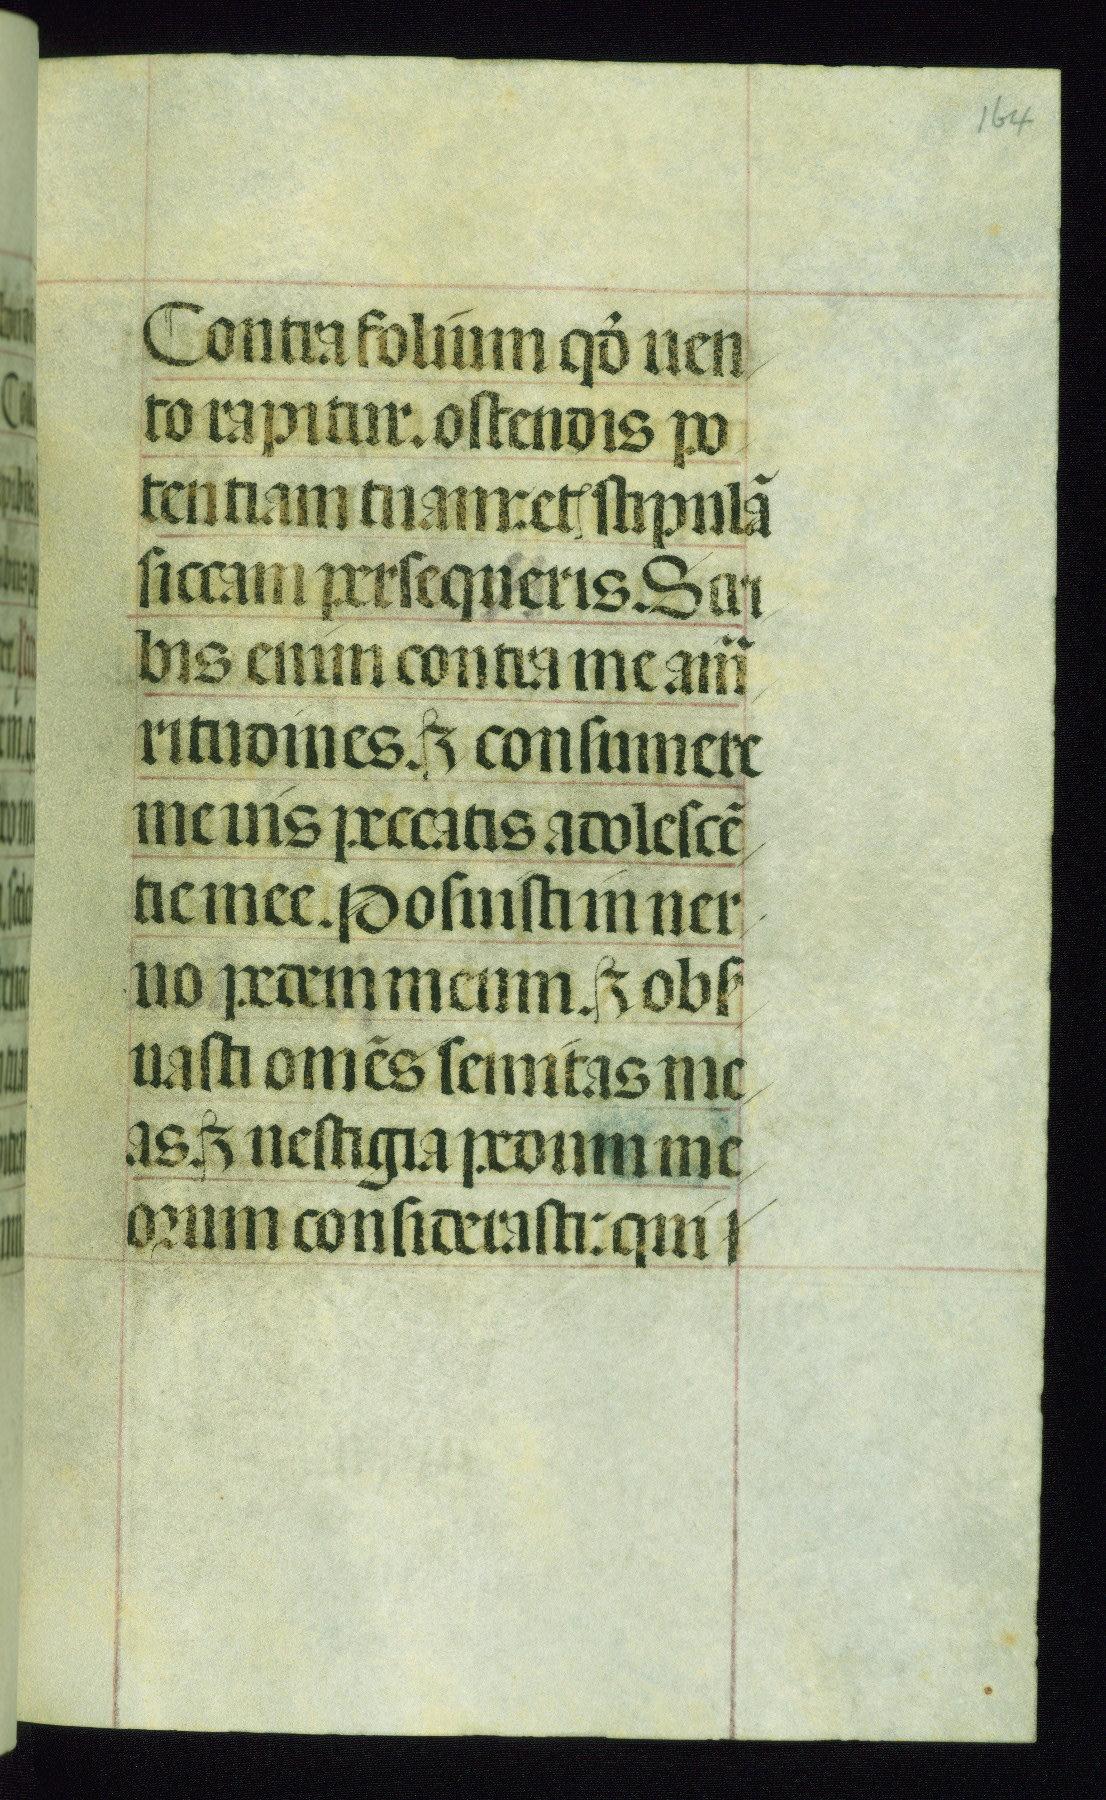 164
Contra folium qđ uen
to rapitur. ostendis po
tentiam tuam: et stipulã
siccam persequeris. Scri
bis enim contra me amã
ritudines. ⁊ consumere
me uis peccatis adolescẽ
tie mee. Posuisti in ner
uo pedem meum. ⁊ obs̃
uasti omẽs semitas me
as. ⁊ uestigia pedum me
orum considerasti: qui